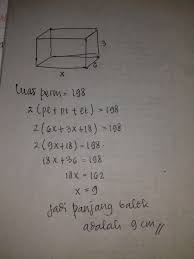 3
6
x
Luas perm = 198
2 (pl + pt + lt) = 198
2 (6x + 3x + 18) = 198
2 (9x + 18) = 198
18x + 36 = 198
18x = 162
x = 9
Jadi panjang balok
adalah 9 cm //